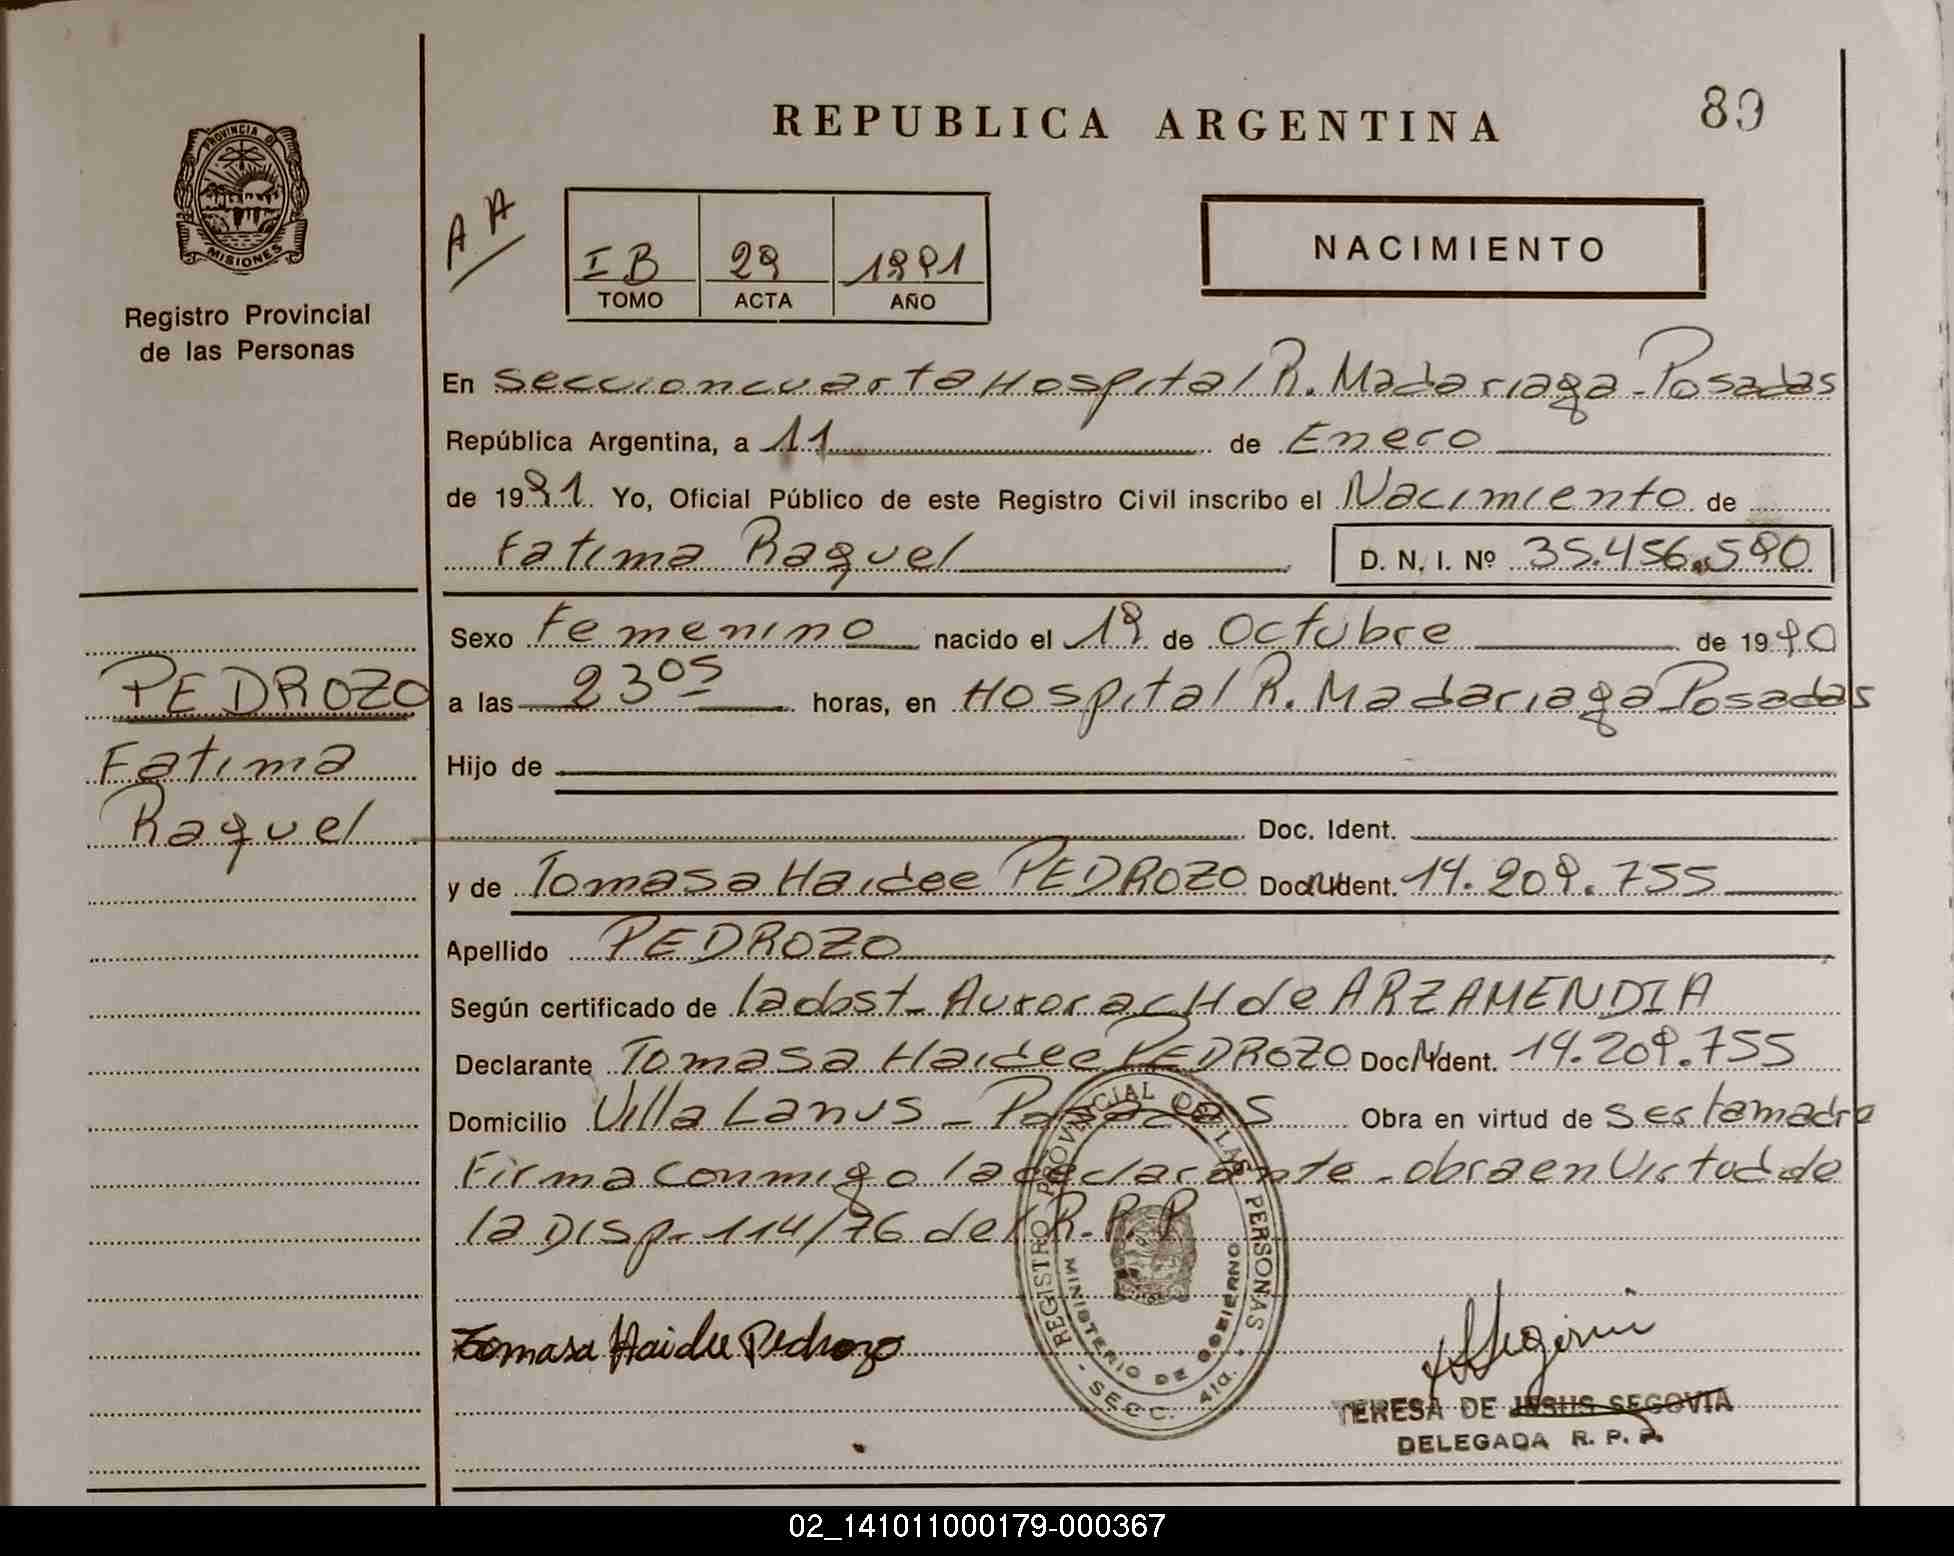 REPUBLICA ARGENTINA
89
PROVINCIA DE
MISIONES
Registro Provincial
de las Personas
AA
IB 29 1991
TOMO ACTA AÑO
NACIMIENTO
En seccion cuarta Hospital R. Madariaga - Posadas
República Argentina, a 11 de Enero
de 1991. Yo, Oficial Público de este Registro Civil inscribo el Nacimiento de
Fatima Raquel D. N. I. Nº 35.456.590
Sexo Femenino nacido el 19 de Octubre de 1990
PEDROZO
Fatima
Raquel
a las 23 05 horas, en Hospital R. Madariaga Posadas
Hijo de
Doc. Ident.
y de Tomasa Haidee PEDROZO Doc. Ident. 14.209.755
Apellido PEDROZO
Según certificado de la obst - Aurora CH de ARZAMENDIA
Declarante Tomasa Haidee PEDROZO Doc. Ident. 14.209.755
Domicilio Villa Lanus - Posadas Obra en virtud de ser la madre
Firma conmigo la declarante - obra en Virtud de
la Disp. 114/76 del R. P. P
REGISTRO PROVINCIAL DE LAS PERSONAS
MINISTERIO DE GOBIERNO
- SECC. 4ta. -
Tomasa Haidee Pedrozo
TERESA DE JESUS SEGOVIA
DELEGADA R. P. P.
02_141011000179-000367